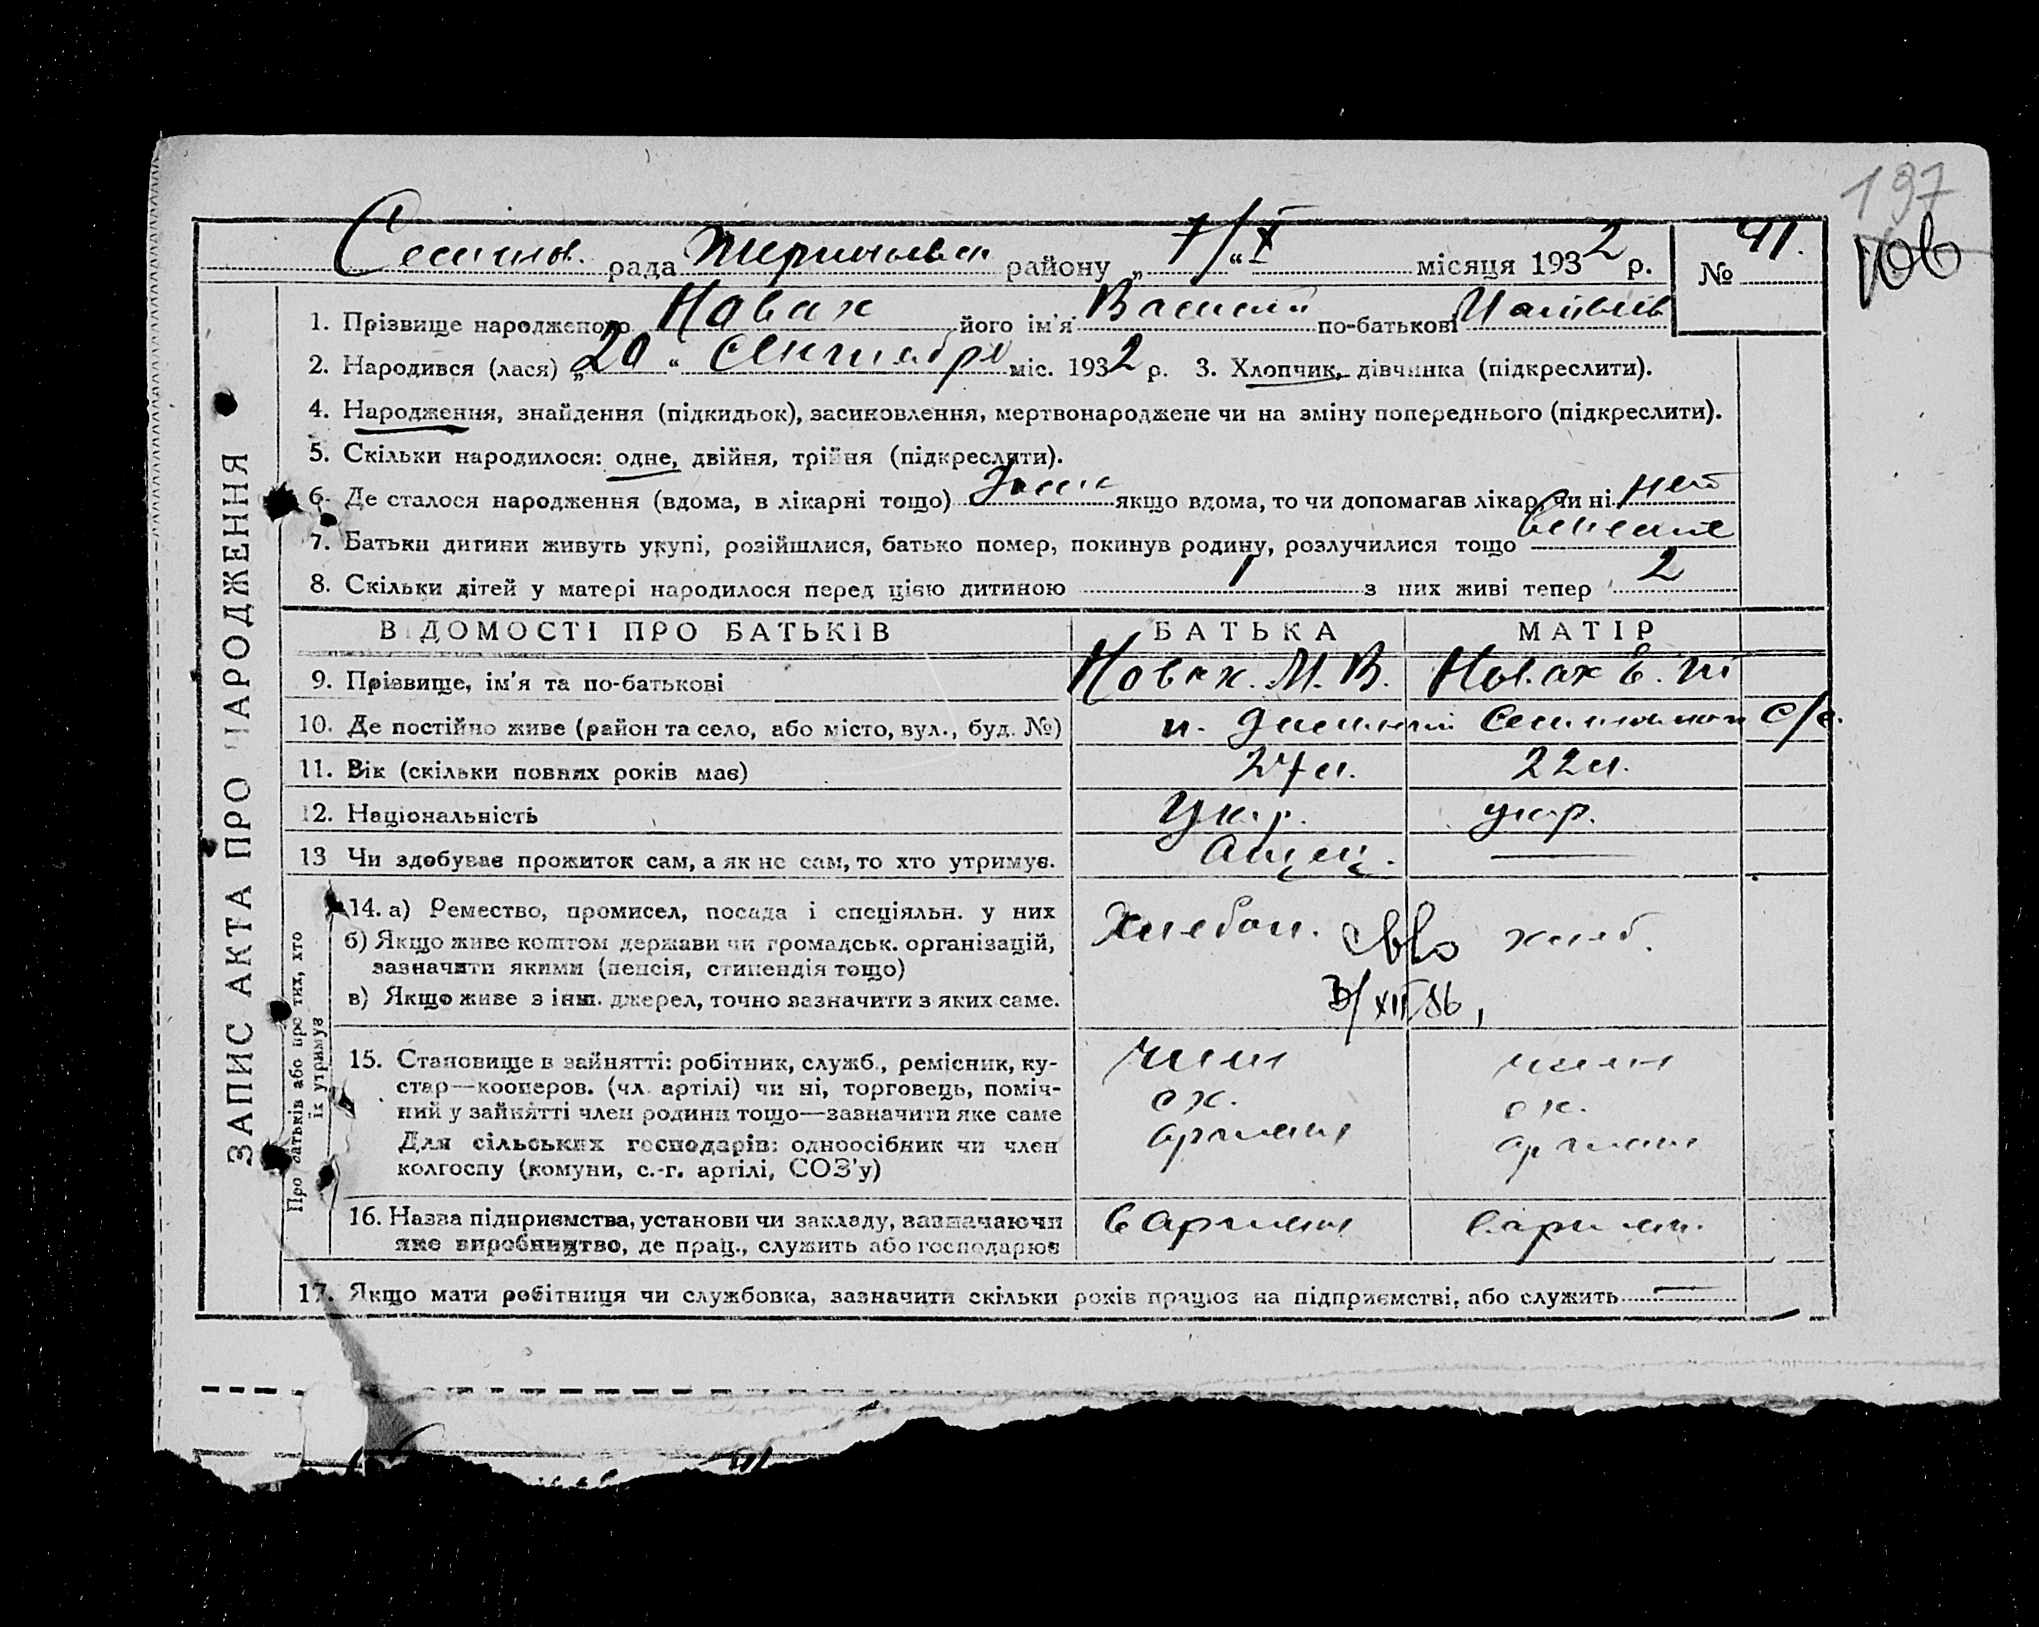 197
106
рада району „7/X“ місяця 1932 р. № 41.
1. Прізвище народженого Новак його ім'я Василий по-батькові
2. Народився (лася) „20“ Сентября міс. 1932 р. 3. Хлопчик, дівчинка (підкреслити).
4. Народження, знайдення (підкидьок), засиновлення, мертвонароджене чи на зміну попереднього (підкреслити).
5. Скільки народилося: одне, двійня, трійня (підкреслити).
6. Де сталося народження (вдома, в лікарні тощо) якщо вдома, то чи допомагав лікар, чи ні нет
7. Батьки дитини живуть укупі, розійшлися, батько помер, покинув родину, розлучилися тощо
8. Скільки дітей у матері народилося перед цією дитиною 1 з них живі тепер 2
ЗАПИС АКТА ПРО НАРОДЖЕННЯ
ВІДОМОСТІ ПРО БАТЬКІВ БАТЬКА МАТІР
9. Прізвище, ім'я та по-батькові Новак. М. В. Новак Е.
10. Де постійно живе (район та село, або місто, вул., буд. №) с/с.
11. Вік (скільки повних років має) 27 л. 22 л.
12. Національність Укр. укр.
13 Чи здобуває прожиток сам, а як не сам, то хто утримує.
Про батьків або про тих, хто їх утримує
14. а) Ремество, промисел, посада і спеціяльн. у них Хлебоп. хлеб.
б) Якщо живе коштом держави чи громадськ. організацій,
зазначити якими (пенсія, стипендія тощо)
в) Якщо живе з інш. джерел, точно зазначити з яких саме.
15. Становище в зайнятті: робітник, служб., ремісник, ку- член член
стар—кооперов. (чл. артілі) чи ні, торговець, поміч- сх. сх.
ний у зайнятті член родини тощо—зазначити яке саме артели артели
Для сільських господарів: одноосібник чи член
колгоспу (комуни, с.-г. артілі, СОЗ'у)
16. Назва підприємства, установи чи закладу, зазначаючи в артели в артели.
яке виробництво, де прац., служить або господарює
17. Якщо мати робітниця чи службовка, зазначити скільки років працює на підприємстві, або служить —